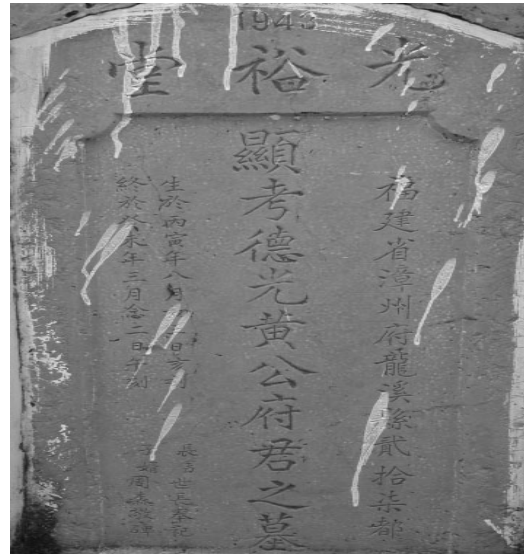 1943
光裕堂
福建省漳州府龍溪縣貳拾柒都
顯考德光黃公府君之墓
生於丙寅年八月日亥刻
終於癸未年三月念二日午刻
長男世